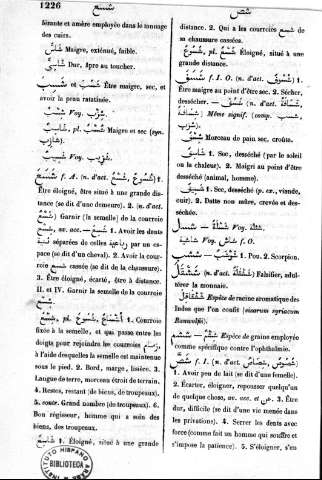 1226
شسع
شص
férante et amère employée dans le tannage
des cuirs.
شاسّ Maigre, exténué, faible.
شاسى Dur, âpre au toucher.
شسب et شسب Être maigre, sec, et
avoir la peau ratatinée.
شسب Voy. شزب.
شاسب, pl. شسب Maigre et sec (syn.
شازب).
شسيب Voy. شزيب.
شسع f. A. (n. d'act. شسع, شسوع) 1.
Être éloigné, être situé à une grande dis-
tance (se dit d'une demeure). 2. (n. d'act.
شسع) Garnir (la semelle) de la courroie
شسع, av. acc. — شسع 1. Avoir les dents
ثنية séparées de celles رباعية par un es-
pace (se dit du cheval). 2. Avoir la cour-
roie شسع cassée (se dit de la chaussure).
3. Être éloigné, écarté, être à distance.
II. et IV. Garnir la semelle de la courroie
شسع.
شسع, pl. شسوع, أشساع 1. Courroie
fixée à la semelle, et qui passe entre les
doigts pour rejoindre les courroies زمام,
à l'aide desquelles la semelle est maintenue
sous le pied. 2. Bord, marge, lisière. 3.
Langue de terre, morceau étroit de terrain.
4. Restes, restant (de biens, de troupeaux).
5. contr. Grand nombre (de troupeaux). 6.
Bon régisseur, homme qui a soin des
biens, des troupeaux.
شاسع 1. Éloigné, situé à une grande
distance. 2. Qui a les courroies شسع de
sa chaussure cassées.
شسوع, pl. شسع Éloigné, situé à une
grande distance.
شسف f. I. O. (n. d'act. شسوف) 1.
Être maigre au point d'être sec. 2. Sécher,
dessécher. — شسف (n. d'act. شسافة,
شسافة) Même signif. (comp. شسب,
شزب).
شسف Morceau de pain sec, croûte.
شاسف 1. Sec, desséché (par le soleil
ou la chaleur). 2. Maigri au point d'être
desséché (animal, homme).
شسيف 1. Sec, desséché (p. ex., viande,
cuir). 2. Datte non mûre, crevée et des-
séchée.
شسل — شسلة Voy. شثلة.
شاسية Voy. شاش f. O.
شوشب — شسب 1. Pou. 2. Scorpion.
ششقل (n. d'act. ششقلة) Falsifier, adul-
térer la monnaie.
ششقاقل Espèce de racine aromatique des
Indes que l'on confit (cicarum syriacum
Rauwolfii).
ششم — ششم Espèce de graine employée
comme spécifique contre l'ophthalmie.
شص f. I. (n. d'act. شصاص, شصوص)
1. Avoir peu de lait (se dit d'une femelle).
2. Écarter, éloigner, repousser quelqu'un
de quelque chose, av. acc. et عن. 3. Être
dur, difficile (se dit d'une vie menée dans
les privations). 4. Serrer les dents avec
force (comme fait un homme qui souffre et
s'impose la patience). 5. S'éloigner, s'en
INSTITUTO HISPANO ARABE
BIBLIOTECA